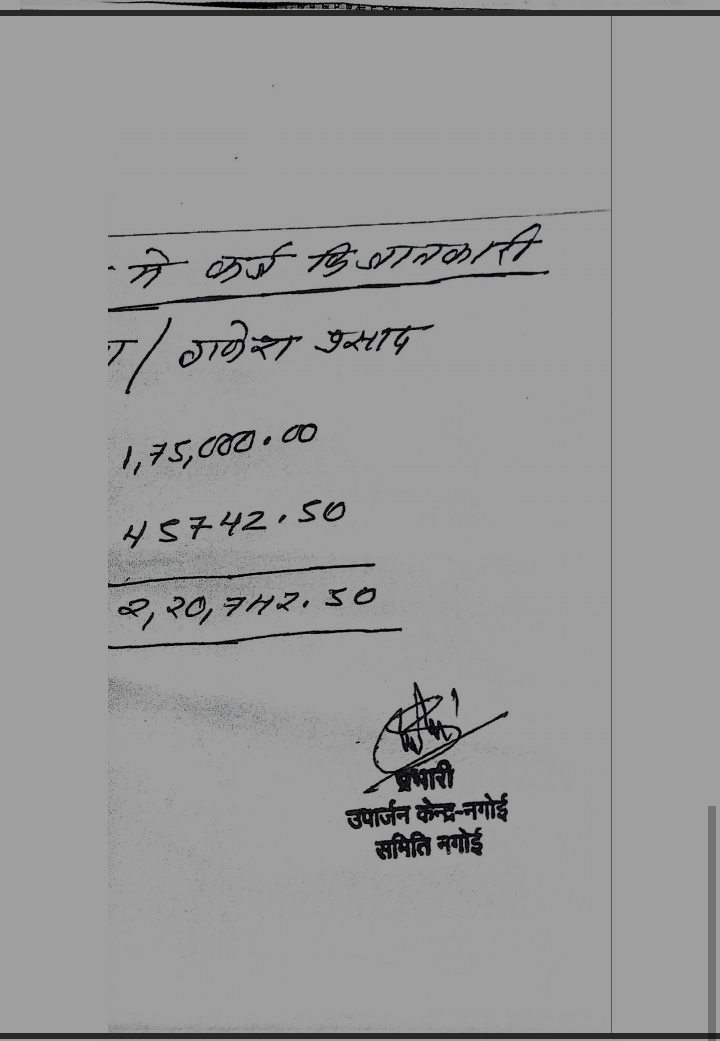 मे कर्ज कि जानकारी
/ गणेश प्रसाद
1,75,000.00
45742.50
2,20,742.50
प्रभारी
उपार्जन केन्द्र-नगोई
समिति नगोई